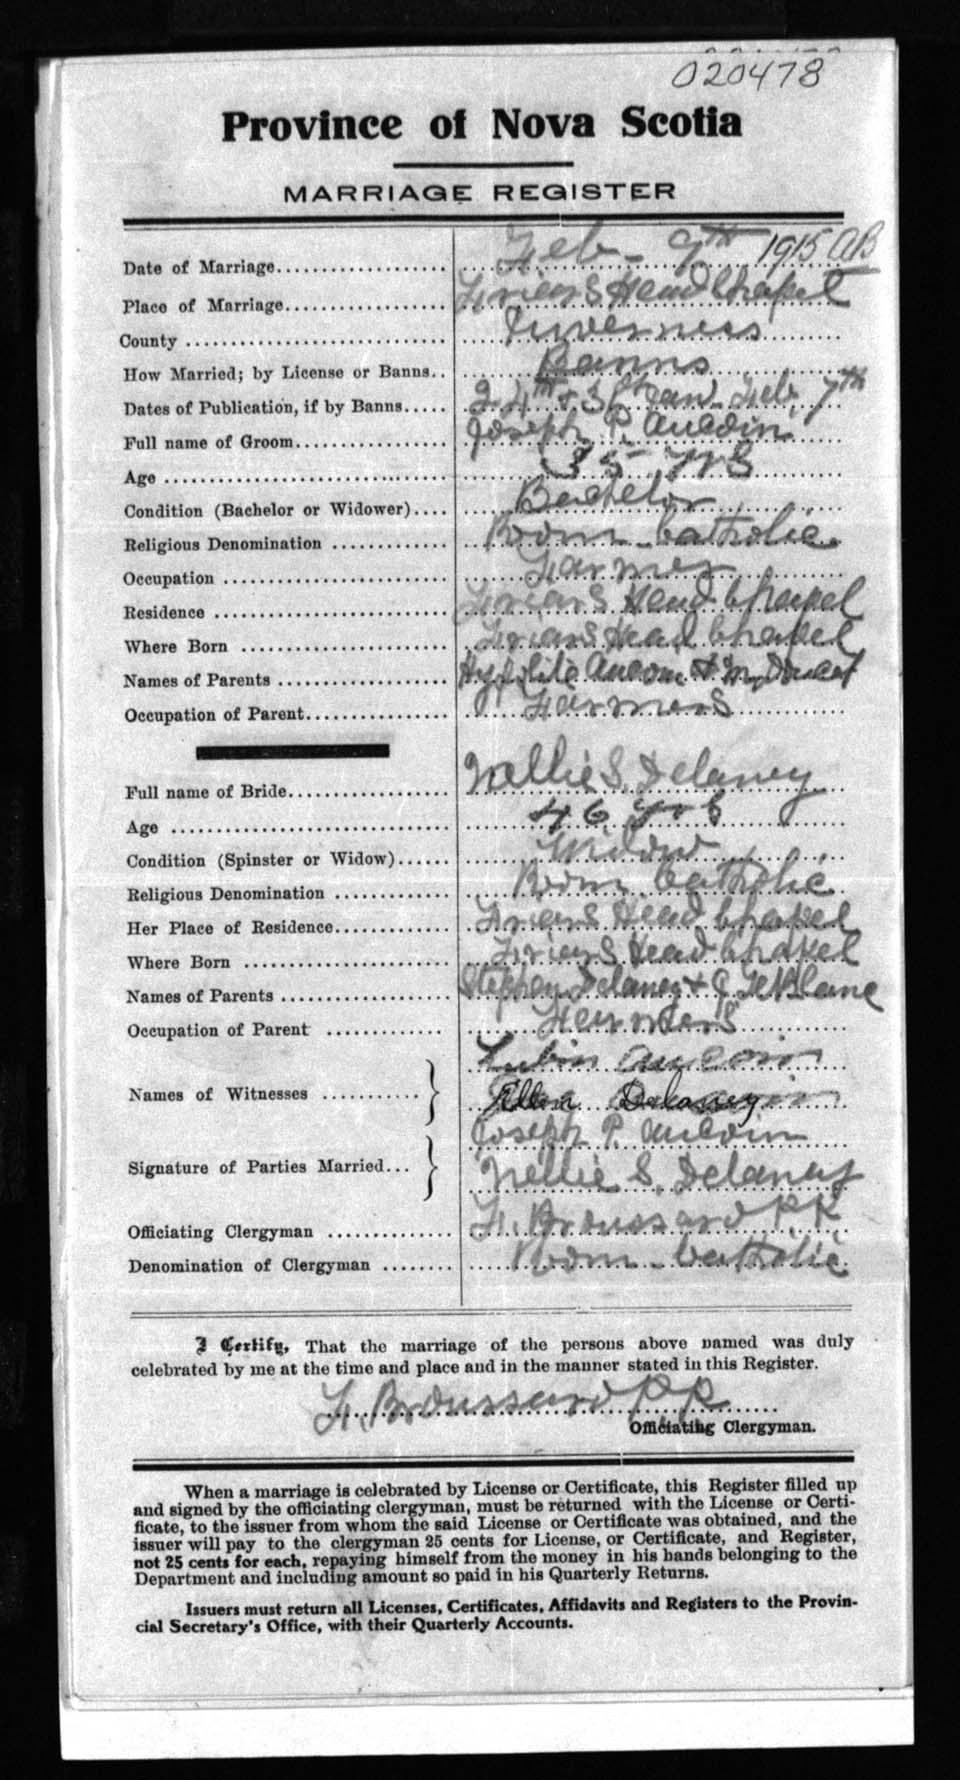 020478
Province of Nova Scotia
MARRIAGE REGISTER
Date of Marriage Feb - 9th 1915 AB
Place of Marriage Friars Head Chapel
County Inverness
How Married; by License or Banns.. Banns
Dates of Publication, if by Banns 24th & 31st Jan. Feb 7th
Full name of Groom Joseph P. Aucoin
Age 35 yrs
Condition (Bachelor or Widower) Bachelor
Religious Denomination Rom. Catholic
Occupation Farmer
Residence Friars Head Chapel
Where Born Friars Head Chapel
Names of Parents Hypolite Aucoin & M. Doucet
Occupation of Parent Farmers
Full name of Bride Nellie S. Delaney
Age 46 yrs
Condition (Spinster or Widow) Widow
Religious Denomination Rom. Catholic
Her Place of Residence Friars Head Chapel
Where Born Friars Head Chapel
Names of Parents Stephen Delaney & J. LeBlanc
Occupation of Parent Farmers
Lubin Aucoin
Names of Witnesses Ellen Delaney
Joseph P. Aucoin
Signature of Parties Married... Nellie S. Delaney
Officiating Clergyman F. Broussard PP.
Denomination of Clergyman Rom. Catholic
I Certify, That the marriage of the persons above named was duly
celebrated by me at the time and place and in the manner stated in this Register.
F. Broussard P.P.
Officiating Clergyman.
When a marriage is celebrated by License or Certificate, this Register filled up
and signed by the officiating clergyman, must be returned with the License or Certi-
ficate, to the issuer from whom the said License or Certificate was obtained, and the
issuer will pay to the clergyman 25 cents for License, or Certificate, and Register,
not 25 cents for each, repaying himself from the money in his hands belonging to the
Department and including amount so paid in his Quarterly Returns.
Issuers must return all Licenses, Certificates, Affidavits and Registers to the Provin-
cial Secretary's Office, with their Quarterly Accounts.